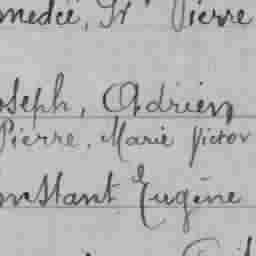 medée, Jr Pierre
oseph, Adrien
Pierre, Marie Victor
onstant Eugène